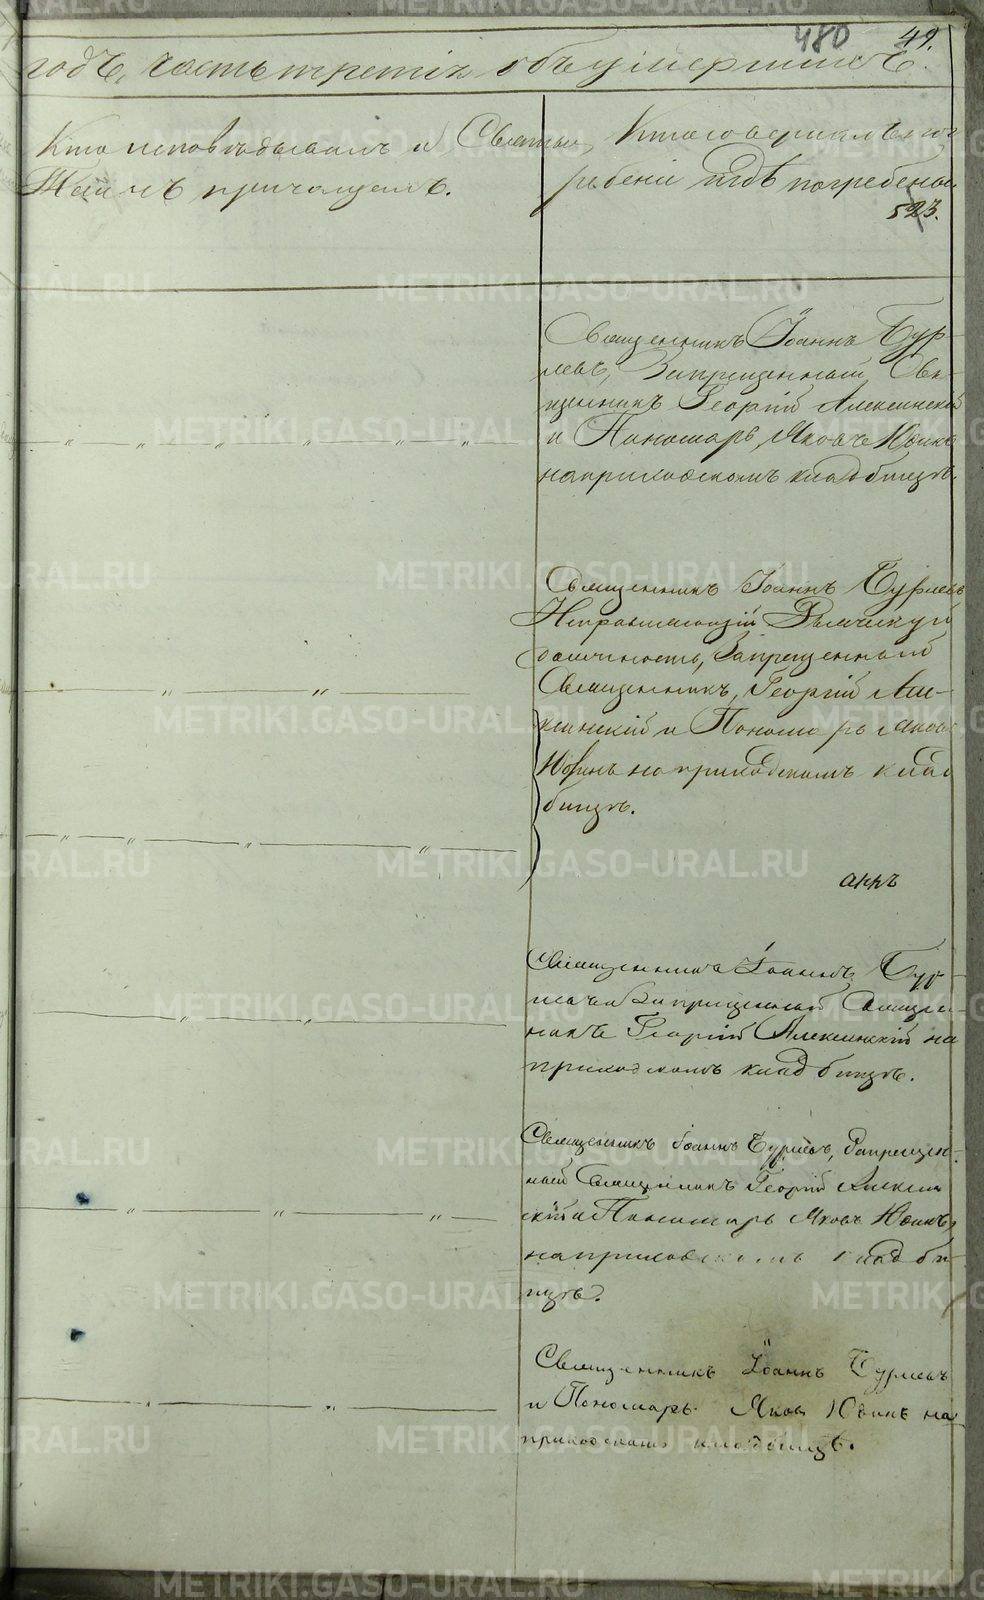 480 49.
годъ, часть третія объ умершихъ.
Кто исповѣдывалъ и Святыхъ
Таинъ причащалъ.
Кто совершалъ пог
ребеніе и гдѣ погребены.
523.
Священникъ Іоаннъ Бур-
левъ, Запрещенный Свя-
щенникъ Георгій Алексинскій
и Пономарь, Яковъ Юдинъ
на приходскомъ кладбищѣ.
Священникъ Іоаннъ Бурлевъ
должность, Запрещенный
Священникъ, Георгій Але-
ксинскій и Пономарь Яковъ
Юдинъ на приходскомъ клад
бищѣ.
Священникъ Іоаннъ Бур-
левъ Запрещенный Священ-
никъ Георгій Алексинскій на
приходскомъ кладбищѣ.
Священникъ Іоаннъ Бурлевъ, Запрещен-
ный Священникъ Георгій Алексин
скій и Пономарь Яковъ Юдинъ,
на приходскомъ кладби-
щѣ.
Священникъ Іоаннъ Бурлевъ
и Пономарь Яковъ Юдинъ на
приходскомъ кладбищѣ.
METRIKI.GASO-URAL.RU